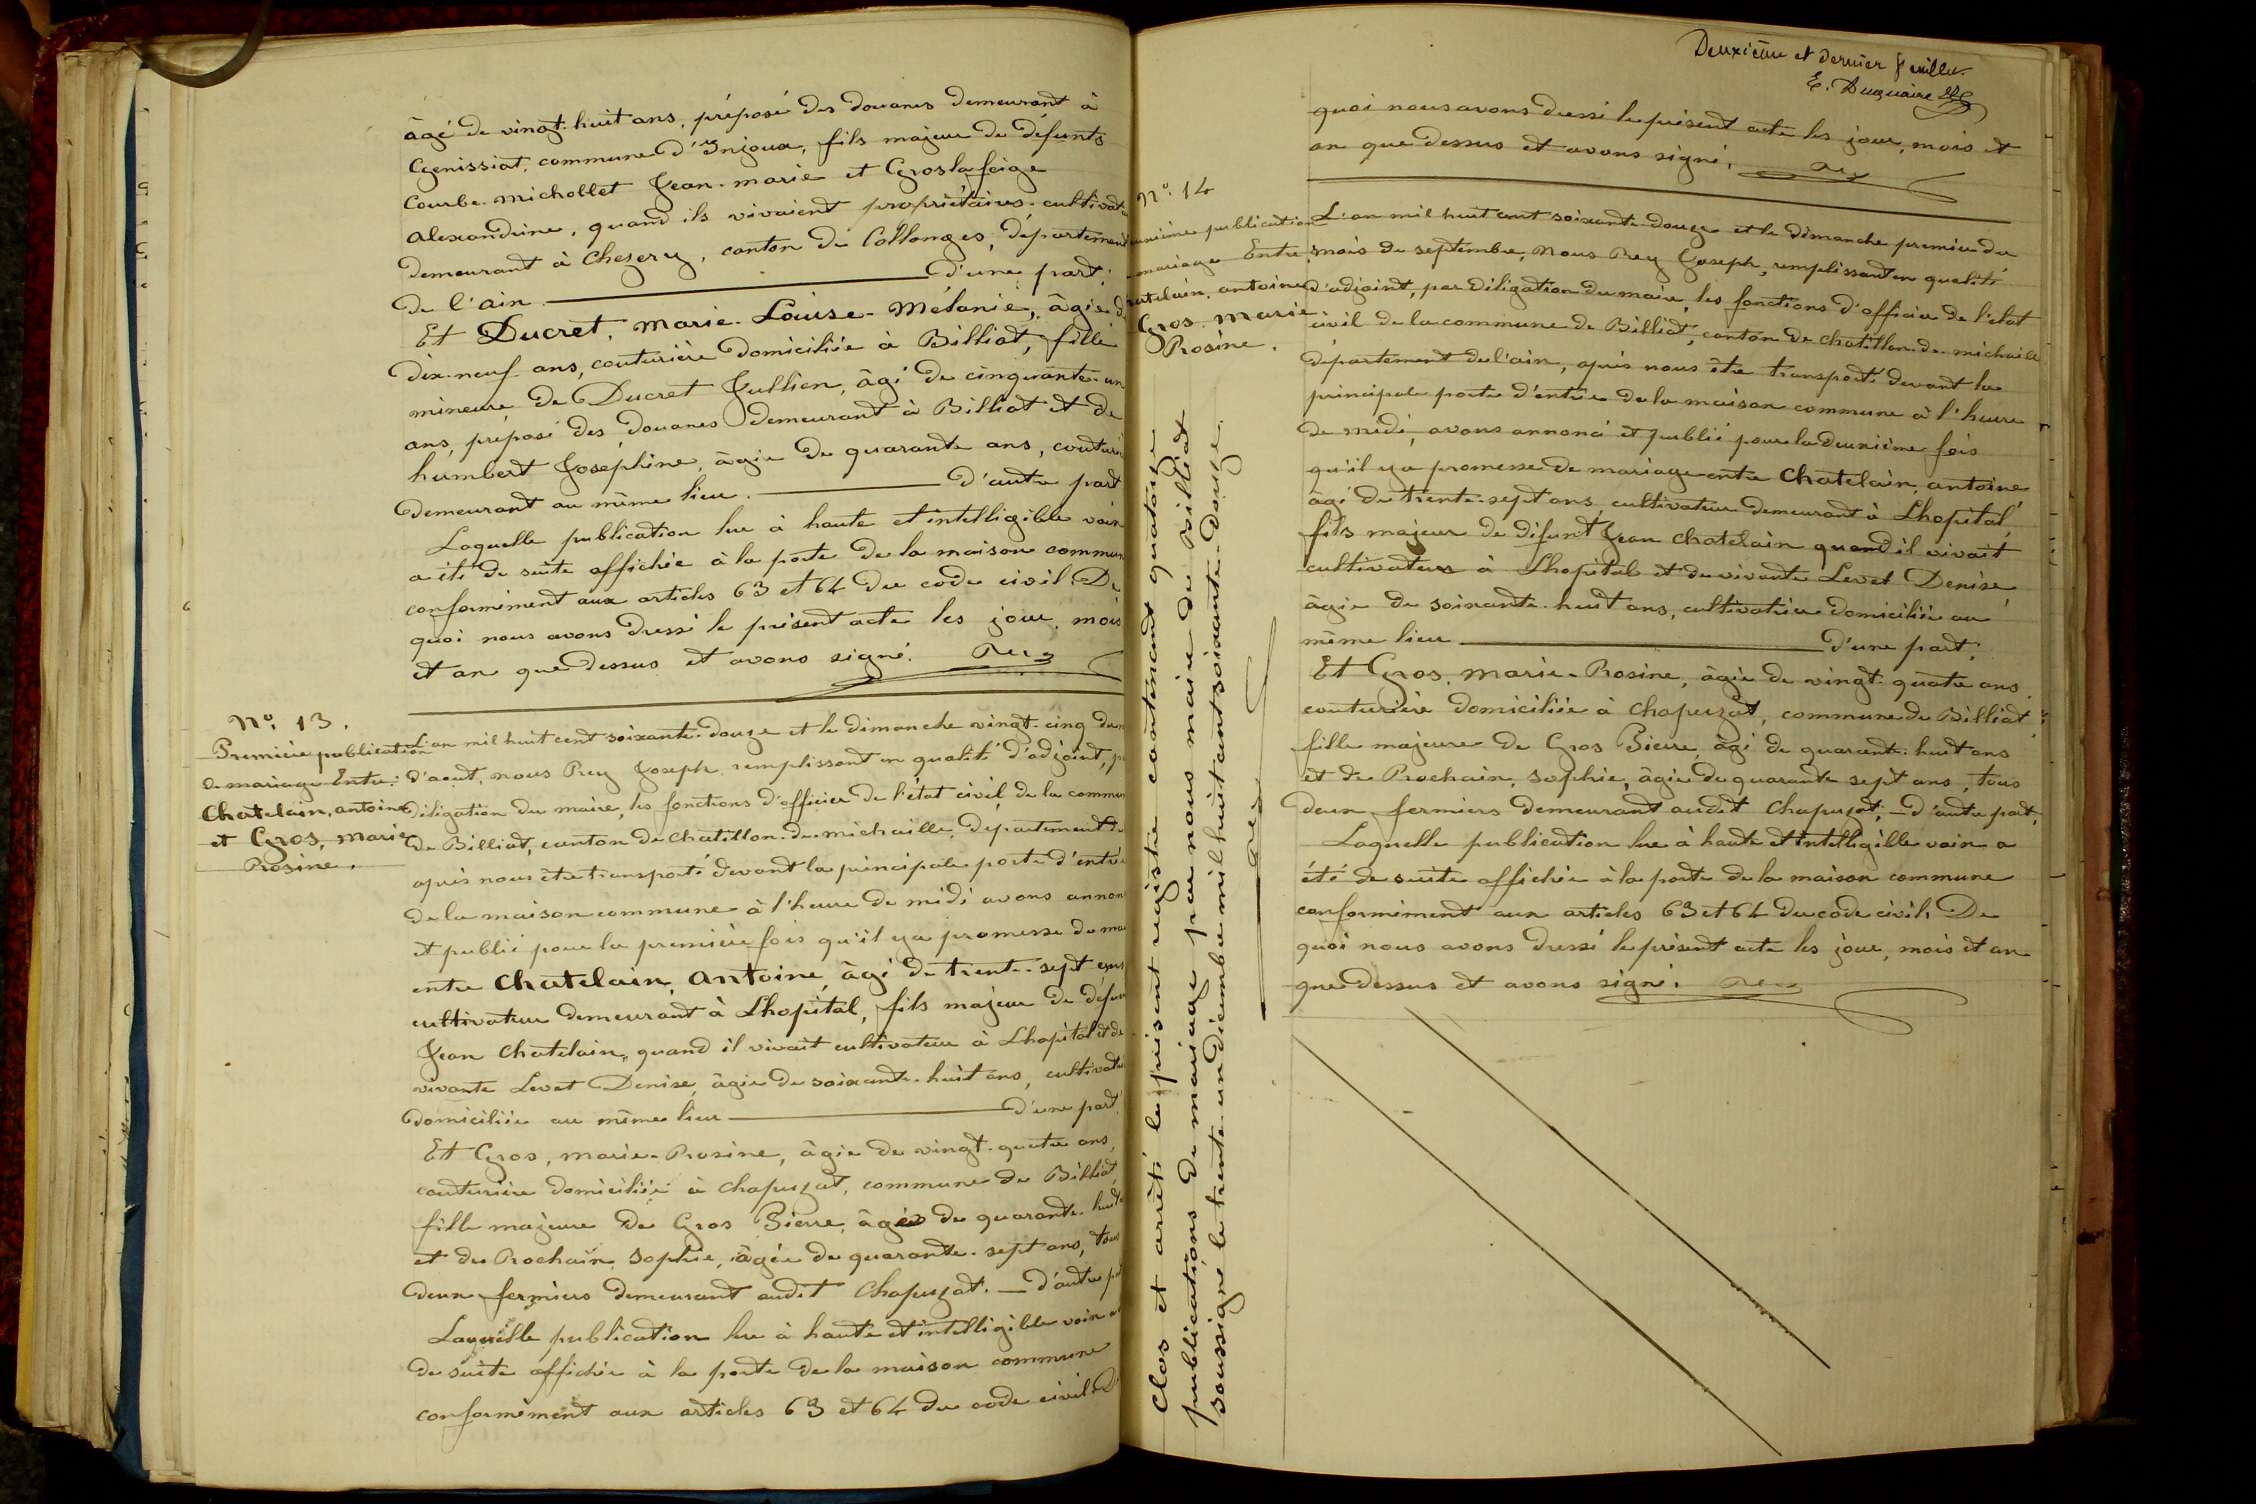 âgé de vingt-huit ans, préposé des douanes demeurant à
Génissiat, commune d'Injoux, fils majeur de défunts
Courbe-michollet Jean-marie et Groslafeige
alexandrine, quand ils vivaient propriétaires-cultivat
demeurant à Chezery, canton de Collonges, département
de l'ain d'une part;
Et Ducret, Marie-Louise-Mélanie, âgée d
dix-neuf ans, couturière domiciliée à Billiat, fille
mineure de Ducret Jullien, âgé de cinquante-un
ans, préposé des douanes demeurant à Billiat et de
humbert Joséphine, âgée de quarante ans, couturi
demeurant au même lieu. d'autre part
Laquelle publication lue à haute et intelligible voix
a été de suite affichée à la porte de la maison commun
conformément aux articles 63 et 64 du code civil. De
quoi nous avons dressé le présent acte les jour, mois
et an que dessus et avons signé. Rey
N° 13.
Première publication
de mariage Entre:
Chatelain, antoine
et Gros, marie
Rosine.
L'an mil huit cent soixante-douze et le dimanche vingt-cinq du m
d'aout, nous Rey Joseph, remplissant en qualité d'adjoint, p
déligation du maire, les fonctions d'officier de l'état civil de la commun
de Billiat, canton de chatillon-de-michaille, département d
après nous être transporté devant la principale porte d'entré
de la maison commune à l'heure de midi avons annon
et publié pour la première fois qu'il y a promesse de ma
entre Chatelain, antoine, âgé de trente-sept ans
cultivateur demeurant à Lhopital, fils majeur de défun
Jean Chatelain, quand il vivait cultivateur à Lhopital et de
vivante Levet Denise, âgée de soixante-huit ans, cultivatri
domiciliée au même lieu d'une part,
Et Gros, marie-Rosine, âgée de vingt-quatre ans,
couturière domiciliée à chapuzat, commune de Billiat,
fille majeure de Gros Pierre, âgé de quarante-huit
et de Prochain, Sophie, âgée de quarante-sept ans, tous
deux fermiers demeurant audit Chapuzat. — d'autre pa
Laquelle publication lue à haute et intelligible voix a
de suite affichée à la porte de la maison commune
conformément aux articles 63 et 64 du code civil. D
Deuxième et dernier feuillet.
quoi nous avons dressé le présent acte les jour, mois et
an que dessus et avons signé. Rey
N° 14
uxième publication
mariage Entre
hatelain, antoine
Gros, marie
Rosine.
L'an mil huit cent soixante-douze et le dimanche premier du
mois de septembre, nous Rey Joseph, remplissant en qualité
d'adjoint, par déligation du maire, les fonctions d'officier de l'état
civil de la commune de Billiat, canton de chatillon-de-michaille
département de l'ain, après nous être transporté devant la
principale porte d'entrée de la maison commune à l'heure
de midi, avons annoncé et publié pour la deuxième fois
qu'il y a promesse de mariage entre Chatelain, antoine
âgé de trente-sept ans, cultivateur demeurant à Lhopital,
fils majeur de défunt Jean Chatelain quand il vivait
cultivateur à Lhopital et de vivante Levet Denise
âgée de soixante-huit ans, cultivatrice domiciliée au
même lieu d'une part;
Et Gros, marie-Rosine, âgée de vingt-quatre ans,
couturière domiciliée à chapuzat, commune de Billiat,
fille majeure de Gros Pierre âgé de quarante-huit ans
et de Prochain, Sophie, âgée de quarante sept ans, tous
deux fermiers demeurant audit Chapuzat; — d'autre part,
Laquelle publication lue à haute et intelligible voix a
été de suite affichée à la porte de la maison commune
conformément aux articles 63 et 64 du code civil. De
quoi nous avons dressé le présent acte les jour, mois et an
que dessus et avons signé. Rey
Clos et arrêté le présent registre contenant quatorze
publications de mariage par nous maire de Billiat
soussigné le trente-un décembre mil huit cent soixante-douze.
Rey